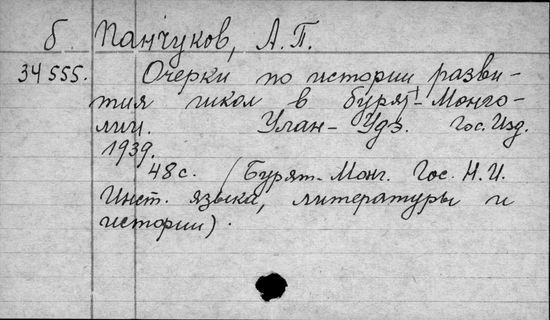 б. Панчуков, А.П.
34555. Очерки по истории разви-
тия школ в Бурят-Монго-
лии. Улан-Удэ. Гос. Изд.
1939.
48 с. (Бурят-Монг. Гос. Н.И.
Инст. языка, литературы и
истории).